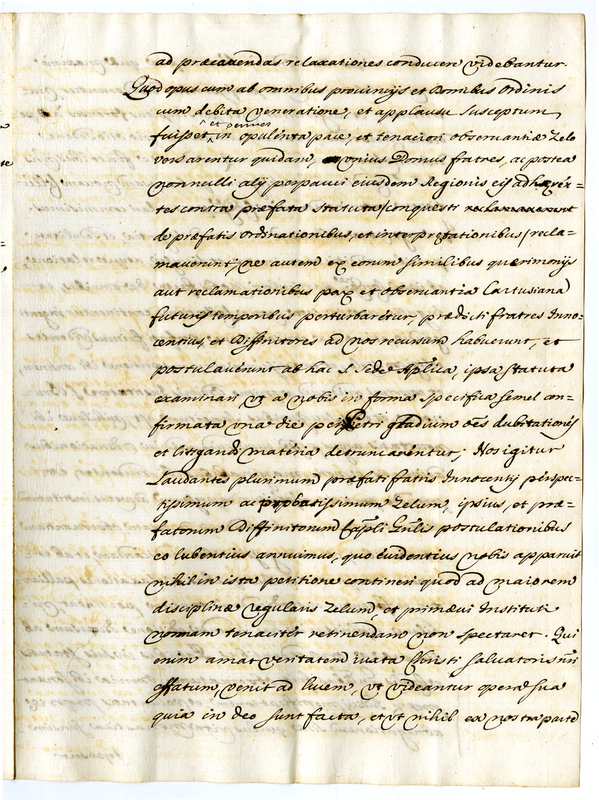 ad præcavendas relaxationes conducere videbantur.
Quod opus cum ab omnibus provincijs et Domibus Ordinis
cum debita veneratione, et applausu susceptum
et
fuisset, in opulenta pace, et tenaciori observantiæ zelo
versarentur quidam unius Domus fratres, ac postea
nonnulli alij perpauci eiusdem Regionis eis adhæren=
tes contra præfata statuta conquesti
de præfatis ordinationibus, et interpretationibus recla=
maverunt, ne autem ex eorum similibus quærimonijs
aut reclamationibus pax et observantia Cartusiana
futuris temporibus perturbaretur, prædicti fratres Inno=
centius, et Diffinitores ad nos recursum habuerunt, et
postulaverunt ab hac S. Sede Aplica, ipsa statuta
examinari ut a nobis in forma specifica semel con=
firmata una die per Petri gladium oes dubitationis
et litigandi materia detruncarentur; Nos igitur
Laudantes plurimum præfati fratris Innocentij perspec=
tissimum ac probatissimum zelum, ipsius, et præ=
fatorum Diffinitorum Capli Gnlis postulationibus
eo lubentius annuimus, quo evidentius nobis apparuit
nihil in ista petitione contineri quod ad maiorem
disciplinæ regularis zelum, et primævi Instituti
normam tenaciter retinendam non spectaret. Qui
enim amat veritatem iuxta Christi salvatoris nri
effatum, venit ad lucem, ut videantur opera sua
quia in deo sunt facta, et ut nihil ex nostra parte